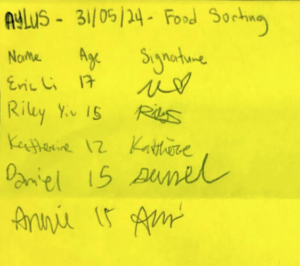 AYLUS - 31/05/24 - Food Sorting
Name Age Signature
Eric Li 17
Riley Yiu 15 Riley
Katherine 12
Daniel 15 Daniel
Annie 15